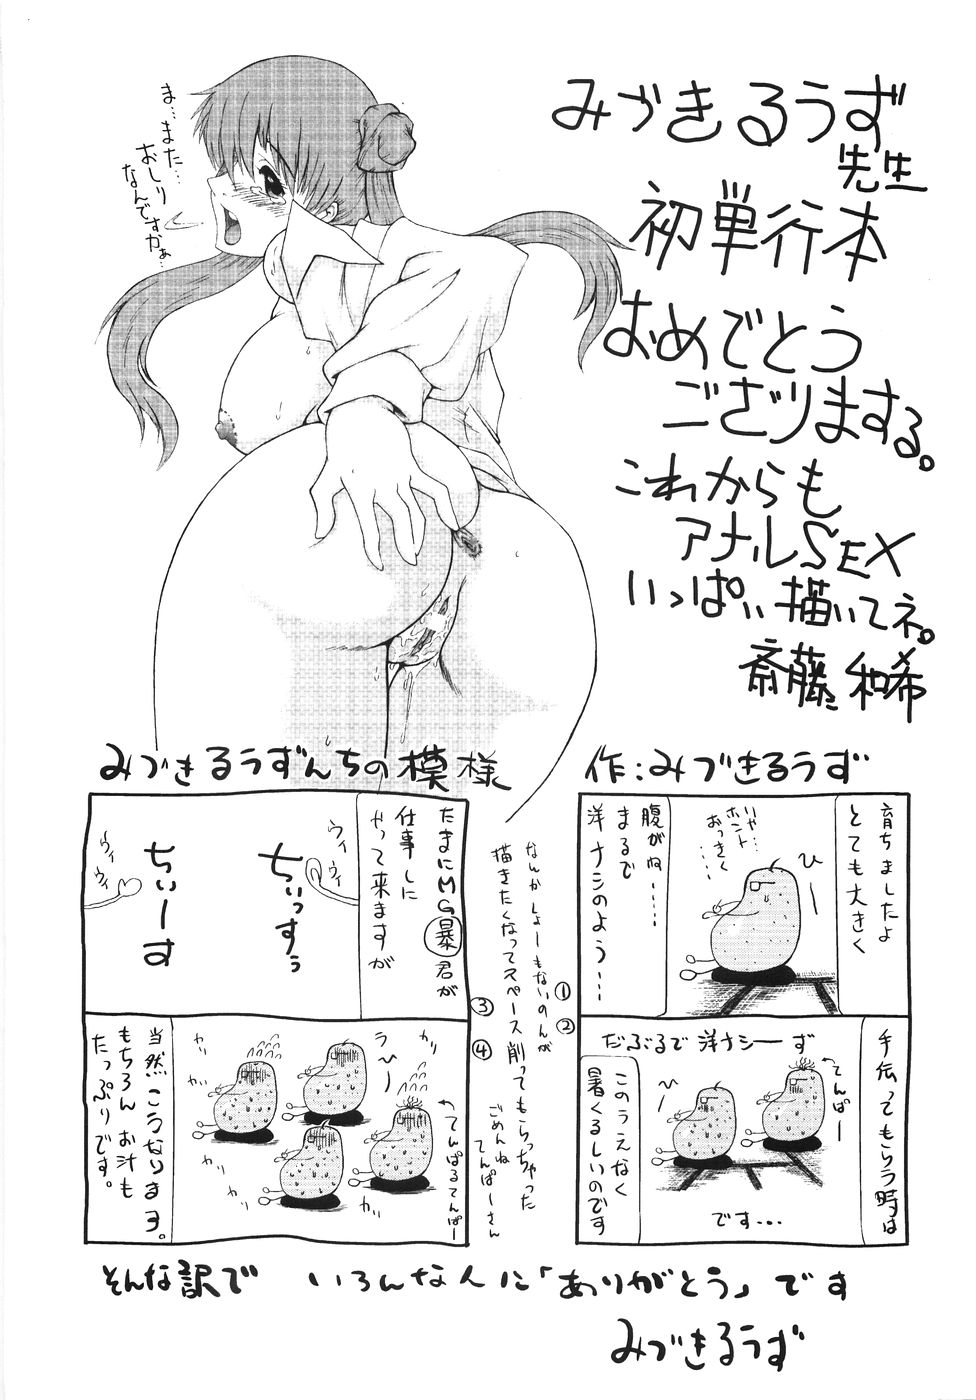 みづきるうず
先生
初単行本
おめでとう
ござりまする。
これからも
アナルSEX
いっぱい描いてネ。
斎藤和希
ま…また…
おしり
なんですかぁ…
作:みづきるうず
育ちましたよ
とても大きく
いや…
ホント
おっきく
……
ひー
腹がね……
まるで
洋ナシのよう…
手伝ってもらう時は
だぶるで洋ナシーず
てんぱー
ひー
このうえなく
暑くるしいのです
です…
①
②
③
④
なんかしょーもないのんが
描きたくなってスペース削ってもらっちゃった
ごめんね
てんぱーさん
みづきるうずんちの模様
たまにMG暴君が
仕事しに
やって来ますが
ウィ
ウィ
ちぃっすぅ
ちぃーす
ウィ
ウィ
カリ
カリ
ラ
ひー
てんぱるてんぱー
カリ
カリ
当然こうなりますヨ。
もちろんお汁も
たっぷりです。
そんな訳で いろんな人に「ありがとう」です
みづきるうず